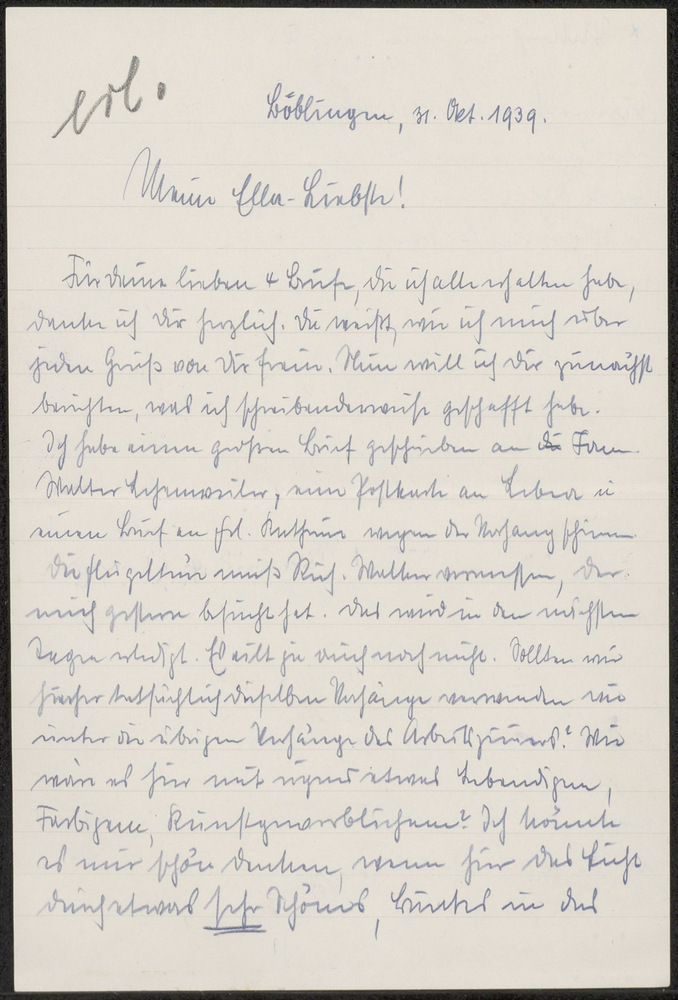 erl.
Böblingen, 31. Okt. 1939.
Meine Ella-Liebste!
Für deine lieben 4 Briefe, die ich alle erhalten habe,
danke ich dir herzlich. Du weißt, wie ich mich über
jeden Gruß von dir freue. Nun will ich dir zunächst
berichten, was ich schreibenderweise geschafft habe.
Ich habe einen großen Brief geschrieben an die Firma
Walter, eine Postkarte an u
einen Brief an Frl. wegen der Vorhangschienen.
Die Flügeltüre muß Rich. Walker vermessen, der
mich gestern besucht hat. Das wird in den nächsten
Tagen erledigt. Es eilt ja auch noch nicht. Sollten wir
hierher tatsächlich dieselben Vorhänge verwenden wie
unter die übrigen Vorhänge des Arbeitszimmers? Wie
wäre es hier mit irgend etwas Lebendigem,
Farbigem, Kunstgewerblichem? Ich könnte
es mir schön denken, wenn hier das Licht
durch etwas sehr Schönes, Buntes in das